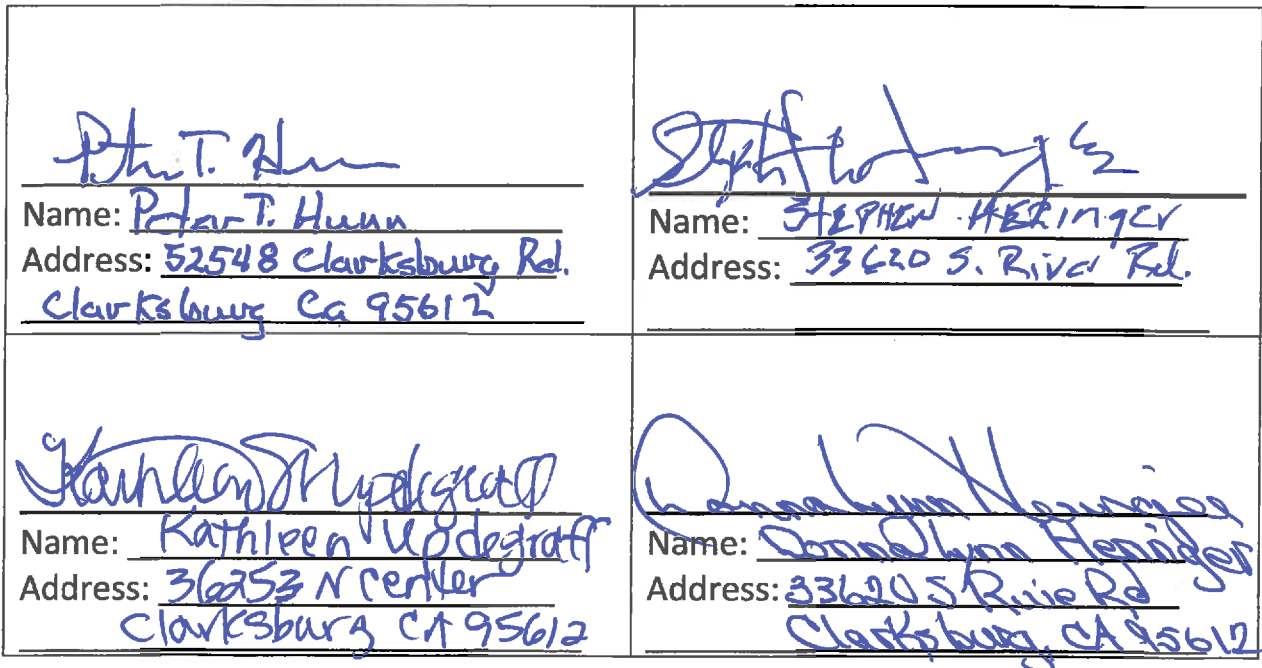 Peter T. Hunn
Name: Peter T. Hunn
Address: 52548 Clarksburg Rd.
Clarksburg Ca 95612
Name: STEPHEN HERINGER
Address: 33620 S. River Rd.
Kathleen Updegraff
Name: Kathleen Updegraff
Address: 36253 N Center
Clarksburg CA 95612
Donna Lynn Heringer
Name: Donna Lynn Heringer
Address: 33620 S River Rd
Clarksburg, CA 95612